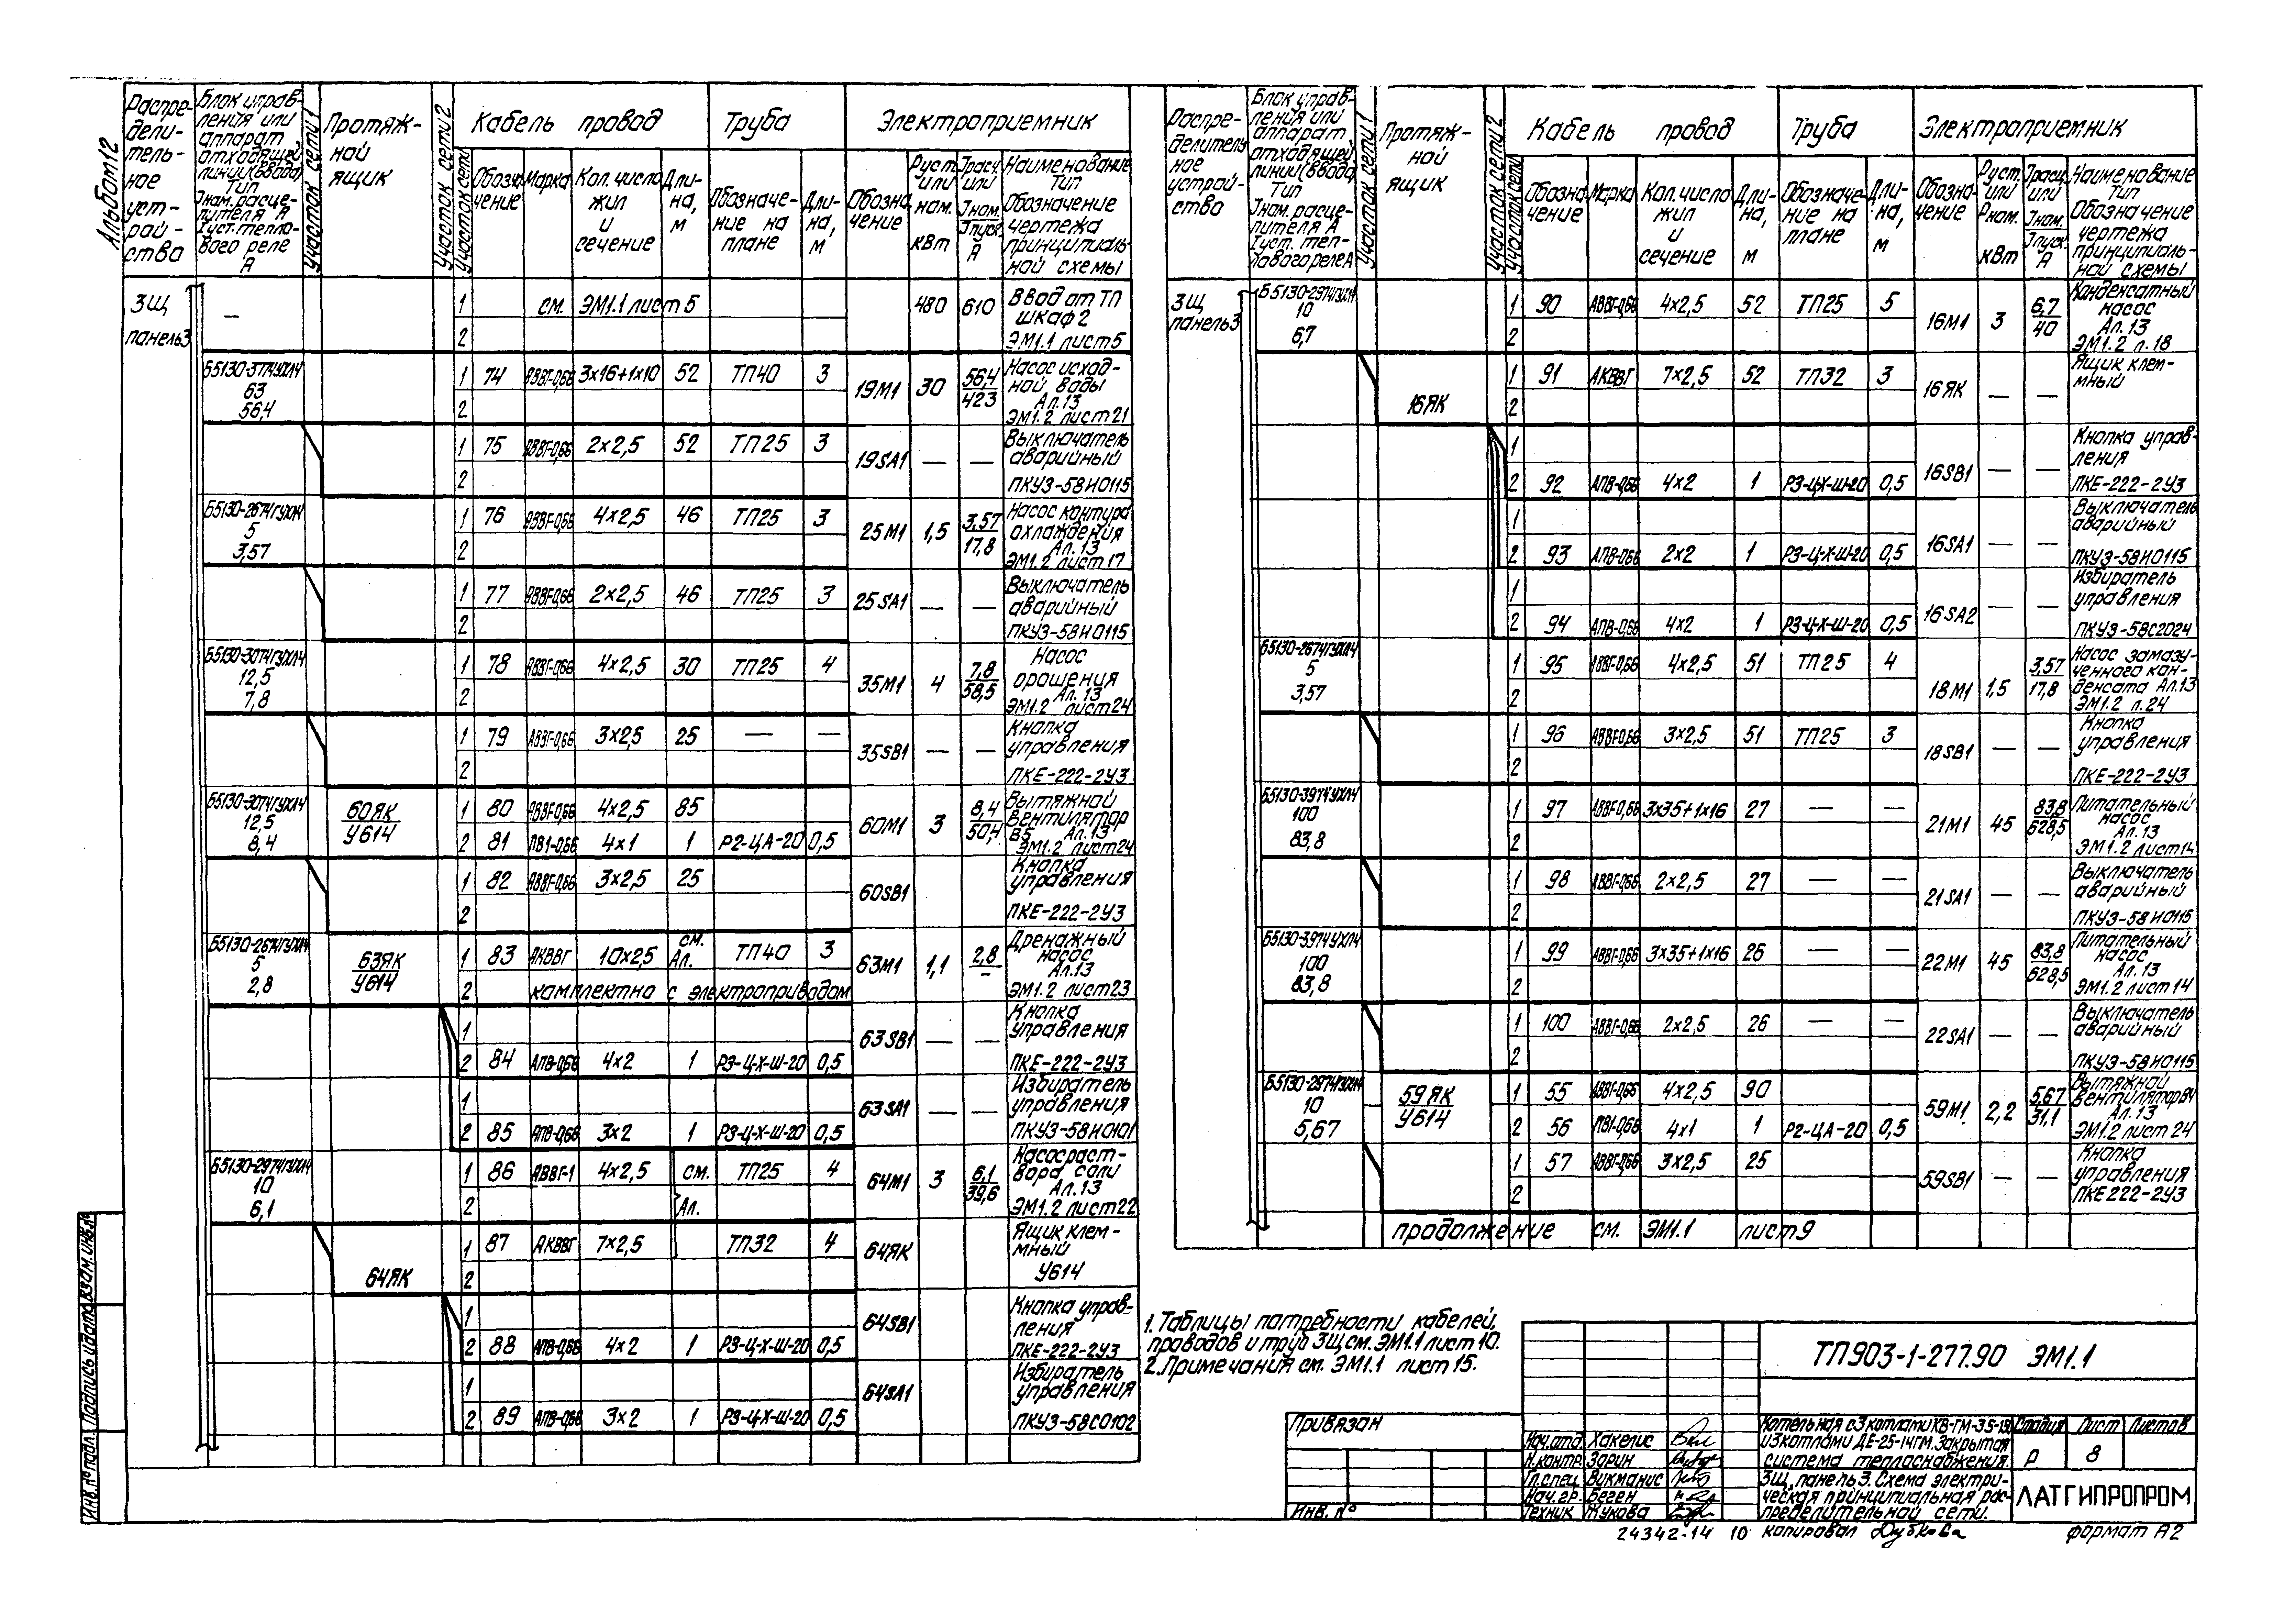 Альбом 12
Распре-делительное устройство | Блок управления или аппарат отходящей линии (ввода) Тип Iном. расцепителя А Iуст. теплового реле А | Участок сети 1 | Протяжной ящик | Участок сети 2 | Участок сети | Кабель провод | Труба | Электроприемник
Обозначение | Марка | Кол. число жил и сечение | Длина, м | Обозначение на плане | Длина, м | Обозначение | Руст. или Рном. кВт | Iрасч. или Iном. Iпуск. А | Наименование Тип Обозначение чертежа принципиальной схемы
3Щ панель3 | — | 1 | см. ЭМ1.1 лист 5 | 480 | 610 | Ввод от ТП шкаф 2 ЭМ1.1 лист 5
2
Б5130-3774УХЛ4 63 56,4 | 1 | 74 | АВВГ-0,66 | 3×16+1×10 | 52 | ТП40 | 3 | 19М1 | 30 | 56,4 423 | Насос исходной воды Ал.13 ЭМ1.2 лист 21
2
1 | 75 | АВВГ-0,66 | 2×2,5 | 52 | ТП25 | 3 | 19SA1 | — | — | Выключатель аварийный ПКУ3-58И0115
2
Б5130-2674ГУХЛ4 5 3,57 | 1 | 76 | АВВГ-0,66 | 4×2,5 | 46 | ТП25 | 3 | 25М1 | 1,5 | 3,57 17,8 | Насос контура охлаждения Ал.13 ЭМ1.2 лист 17
2
1 | 77 | АВВГ-0,66 | 2×2,5 | 46 | ТП25 | 3 | 25SA1 | — | — | Выключатель аварийный ПКУ3-58И0115
2
Б5130-3074ГУХЛ4 12,5 7,8 | 1 | 78 | АВВГ-0,66 | 4×2,5 | 30 | ТП25 | 4 | 35М1 | 4 | 7,8 58,5 | Насос орошения Ал.13 ЭМ1.2 лист 24
2
1 | 79 | АВВГ-0,66 | 3×2,5 | 25 | — | — | 35SB1 | — | — | Кнопка управления ПКЕ-222-2У3
2
Б5130-3074ГУХЛ4 12,5 8,4 | 60ЯК У614 | 1 | 80 | АВВГ-0,66 | 4×2,5 | 85 | 60М1 | 3 | 8,4 50,4 | Вытяжной вентилятор В5 Ал.13 ЭМ1.2 лист 24
2 | 81 | ПВ1-0,66 | 4×1 | 1 | Р2-ЦА-20 | 0,5
1 | 82 | АВВГ-0,66 | 3×2,5 | 25 | 60SB1 | Кнопка управления ПКЕ-222-2У3
2
Б5130-2674ГУХЛ4 5 2,8 | 63ЯК У614 | 1 | 83 | АКВВГ | 10×2,5 | см. Ал. | ТП40 | 3 | 63М1 | 1,1 | 2,8 – | Дренажный насос Ал.13 ЭМ1.2 лист 23
2 | комплектно с электроприводом
1 | 63SB1 | — | — | Кнопка управления ПКЕ-222-2У3
2 | 84 | АПВ-0,66 | 4×2 | 1 | Р3-Ц-Х-Ш-20 | 0,5
1 | 63SA1 | — | — | Избиратель управления ПКУ3-58И0101
2 | 85 | АПВ-0,66 | 3×2 | 1 | Р3-Ц-Х-Ш-20 | 0,5
Б5130-2974ГУХЛ4 10 6,1 | 1 | 86 | АВВГ-1 | 4×2,5 | см. Ал. | ТП25 | 4 | 64М1 | 3 | 6,1 39,6 | Насос раствора соли Ал.13 ЭМ1.2 лист 22
2
64ЯК | 1 | 87 | АКВВГ | 7×2,5 | ТП32 | 4 | 64ЯК | Ящик клеммный У614
2
1 | 64SB1 | Кнопка управления ПКЕ-222-2У3
2 | 88 | АПВ-0,66 | 4×2 | 1 | Р3-Ц-Х-Ш-20 | 0,5
1 | 64SA1 | Избиратель управления ПКУ3-58С0102
2 | 89 | АПВ-0,66 | 3×2 | 1 | Р3-Ц-Х-Ш-20 | 0,5
Распределительное устройство | Блок управления или аппарат отходящей линии (ввода) Тип Iном. расцепителя А Iуст. теплового реле А | Участок сети 1 | Протяжной ящик | Участок сети 2 | Участок сети | Кабель провод | Труба | Электроприемник
Обозначение | Марка | Кол. число жил и сечение | Длина, м | Обозначение на плане | Длина, м | Обозначение | Руст. или Рном. кВт | Iрасц. или Iном. Iпуск. А | Наименование Тип Обозначение чертежа принципиальной схемы
3Щ панель3 | Б5130-2974УХЛ4 10 6,7 | 1 | 90 | АВВГ-0,66 | 4×2,5 | 52 | ТП25 | 5 | 16М1 | 3 | 6,7 40 | Конденсатный насос Ал.13 ЭМ1.2 л.18
2
16ЯК | 1 | 91 | АКВВГ | 7×2,5 | 52 | ТП32 | 3 | 16ЯК | — | — | Ящик клеммный
2
1 | 16SB1 | — | — | Кнопка управления ПКЕ-222-2У3
2 | 92 | АПВ-0,66 | 4×2 | 1 | Р3-Ц-Х-Ш-20 | 0,5
1 | 16SA1 | — | — | Выключатель аварийный ПКУ3-58И0115
2 | 93 | АПВ-0,66 | 2×2 | 1 | Р3-Ц-Х-Ш-20 | 0,5
1 | 16SA2 | — | — | Избиратель управления ПКУ3-58С2024
2 | 94 | АПВ-0,66 | 4×2 | 1 | Р3-Ц-Х-Ш-20 | 0,5
Б5130-2674ГУХЛ4 5 3,57 | 1 | 95 | АВВГ-0,66 | 4×2,5 | 51 | ТП25 | 4 | 18М1 | 1,5 | 3,57 17,8 | Насос замазученного конденсата Ал.13 ЭМ1.2 л.24
2
1 | 96 | АВВГ-0,66 | 3×2,5 | 51 | ТП25 | 3 | 18SB1 | — | — | Кнопка управления ПКЕ-222-2У3
2
Б5130-3974УХЛ4 100 83,8 | 1 | 97 | АВВГ-0,66 | 3×35+1×16 | 27 | — | — | 21М1 | 45 | 83,8 628,5 | Питательный насос Ал.13 ЭМ1.2 лист 14
2
1 | 98 | АВВГ-0,66 | 2×2,5 | 27 | — | — | 21SA1 | — | — | Выключатель аварийный ПКУ3-58И0115
2
Б5130-3974УХЛ4 100 83,8 | 1 | 99 | АВВГ-0,66 | 3×35+1×16 | 26 | — | — | 22М1 | 45 | 83,8 628,5 | Питательный насос Ал.13 ЭМ1.2 лист 14
2
1 | 100 | АВВГ-0,66 | 2×2,5 | 26 | — | — | 22SA1 | — | — | Выключатель аварийный ПКУ3-58И0115
2
Б5130-2974УХЛ4 10 5,67 | 59ЯК У614 | 1 | 55 | АВВГ-0,66 | 4×2,5 | 90 | 59М1 | 2,2 | 5,67 31,1 | Вытяжной вентилятор В4 Ал.13 ЭМ1.2 лист 24
2 | 56 | ПВ1-0,66 | 4×1 | 1 | Р2-ЦА-20 | 0,5
1 | 57 | АВВГ-0,66 | 3×2,5 | 25 | 59SB1 | — | — | Кнопка управления ПКЕ 222-2У3
2
продолжение см. ЭМ1.1 лист 9
1. Таблицы потребности кабелей,
проводов и труб 3Щ см. ЭМ1.1 лист 10.
2. Примечания см. ЭМ1.1 лист 15.
ТП903-1-277.90 ЭМ1.1
Привязан
Инв. №
Нач.отд. Хакелис
Н.контр. Зарин
Гл.спец. Викманис
Нач.гр. Беген
Техник Жукова
Котельная с 3 котлами КВ-ГМ-35-150
и 3 котлами ДЕ-25-14ГМ. Закрытая
система теплоснабжения.
Стадия Лист Листов
Р 8
3Щ, панель 3. Схема электри-
ческая принципиальная рас-
пределительной сети.
ЛАТГИПРОПРОМ
24342-14 10 копировал Дубкова формат А2
Инв. № подл. Подпись и дата Взам. инв. №